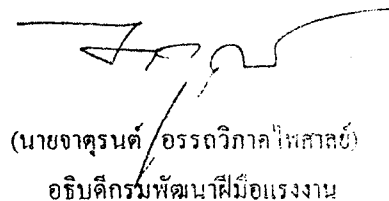 (นายจาตุรนต์ อรรถวิภาคไพศาลย์)
อธิบดีกรมพัฒนาฝีมือแรงงาน